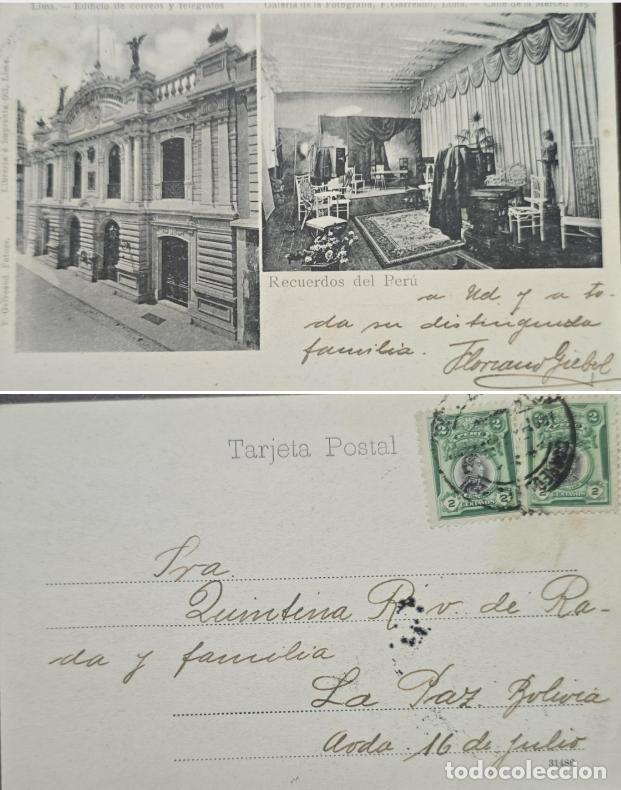 Lima. — Edificio de correos y telégrafos
Galeria de la Fotografia, F. Garreaud, Lima. — Calle de la Merced
Librería é Imprenta Gil, Lima.
F. Garreaud, Fotogr.
Recuerdos del Perú
a Ud. y a to-
da su distinguida
familia. Floriano Giebel
Tarjeta Postal
2 PERU 2
2 CENTAVOS 2
2 2
2 CENTAVOS 2
Sra.
Quintina R. v. de Ra-
da y familia
La Paz. Bolivia
Avda 16 de Julio
31486
todocoleccion